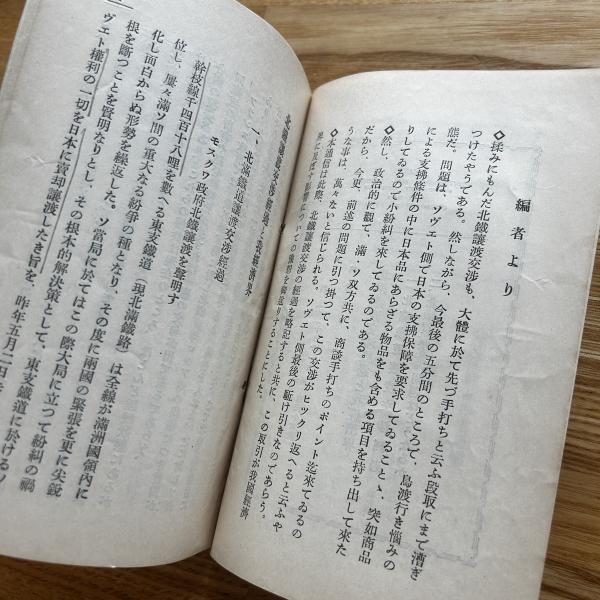 編者より
◇揉みにもんだ北鐵讓渡交渉も、大體に於て先づ手打ちと云ふ段取にまで漕ぎ
つけたやうである。然しながら、今最後の五分間のところで、鳥渡行き惱みの
態だ。問題は、ソヴェト側で日本の支拂保障を要求してゐること、突如商品
による支拂條件の中に日本品にあらざる物品をも含める項目を持ち出して來た
りしてゐるので小紛糾を來してゐるのである。
◇然し、政治的に觀て、滿・ソ双方共に、商談手打ちのポイント迄來てゐるの
だから、今更、前述の問題に引つ掛つて、この交渉がヒツクリ返へると云ふや
うな事は、萬々ないと信じられる。ソヴェト側最後の駈け引きなのであらう。
◇本通信は此際、北鐵讓渡交渉の經過を略記すると共に、この取引が我國經濟
界に及ぼす影響についての
北滿鐵道讓渡交渉經過と我經濟界
一、北滿鐵道讓渡交渉經過
モスクワ政府北鐵讓渡を聲明す
幹枝線千四百十八哩を數へる東支鐵道(現北滿鐵路)は全線が滿洲國領內に
位し、屢々滿ソ間の重大なる紛爭の種となり、その度に兩國の緊張を更に尖銳
化し面白からぬ形勢を繰返した。ソ當局に於てはこの際大局に立つて紛糾の禍
根を斷つことを賢明なりとし、その根本的解決策として、東支鐵道に於けるソ
ヴエト權利の一切を日本に賣却讓渡したき旨を、昨年五月二日